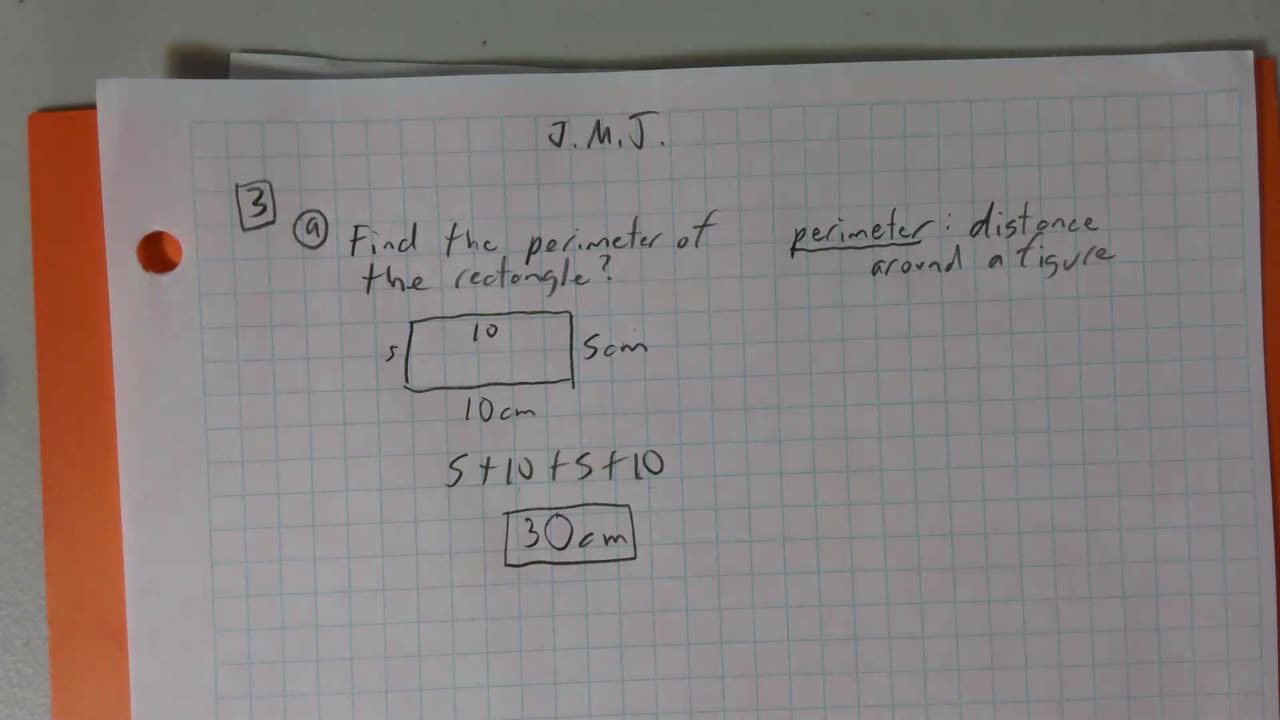 J.M.J.
3
a Find the perimeter of
the rectangle?
perimeter: distance
around a figure
10
5
5cm
10cm
5+10+5+10
30cm